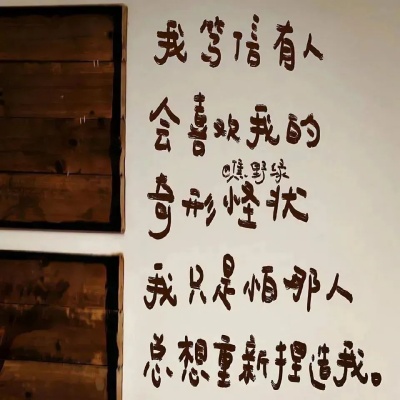 我笃信有人
会喜欢我的
@焦野绿
奇形怪状
我只是怕那人
总想重新捏造我。